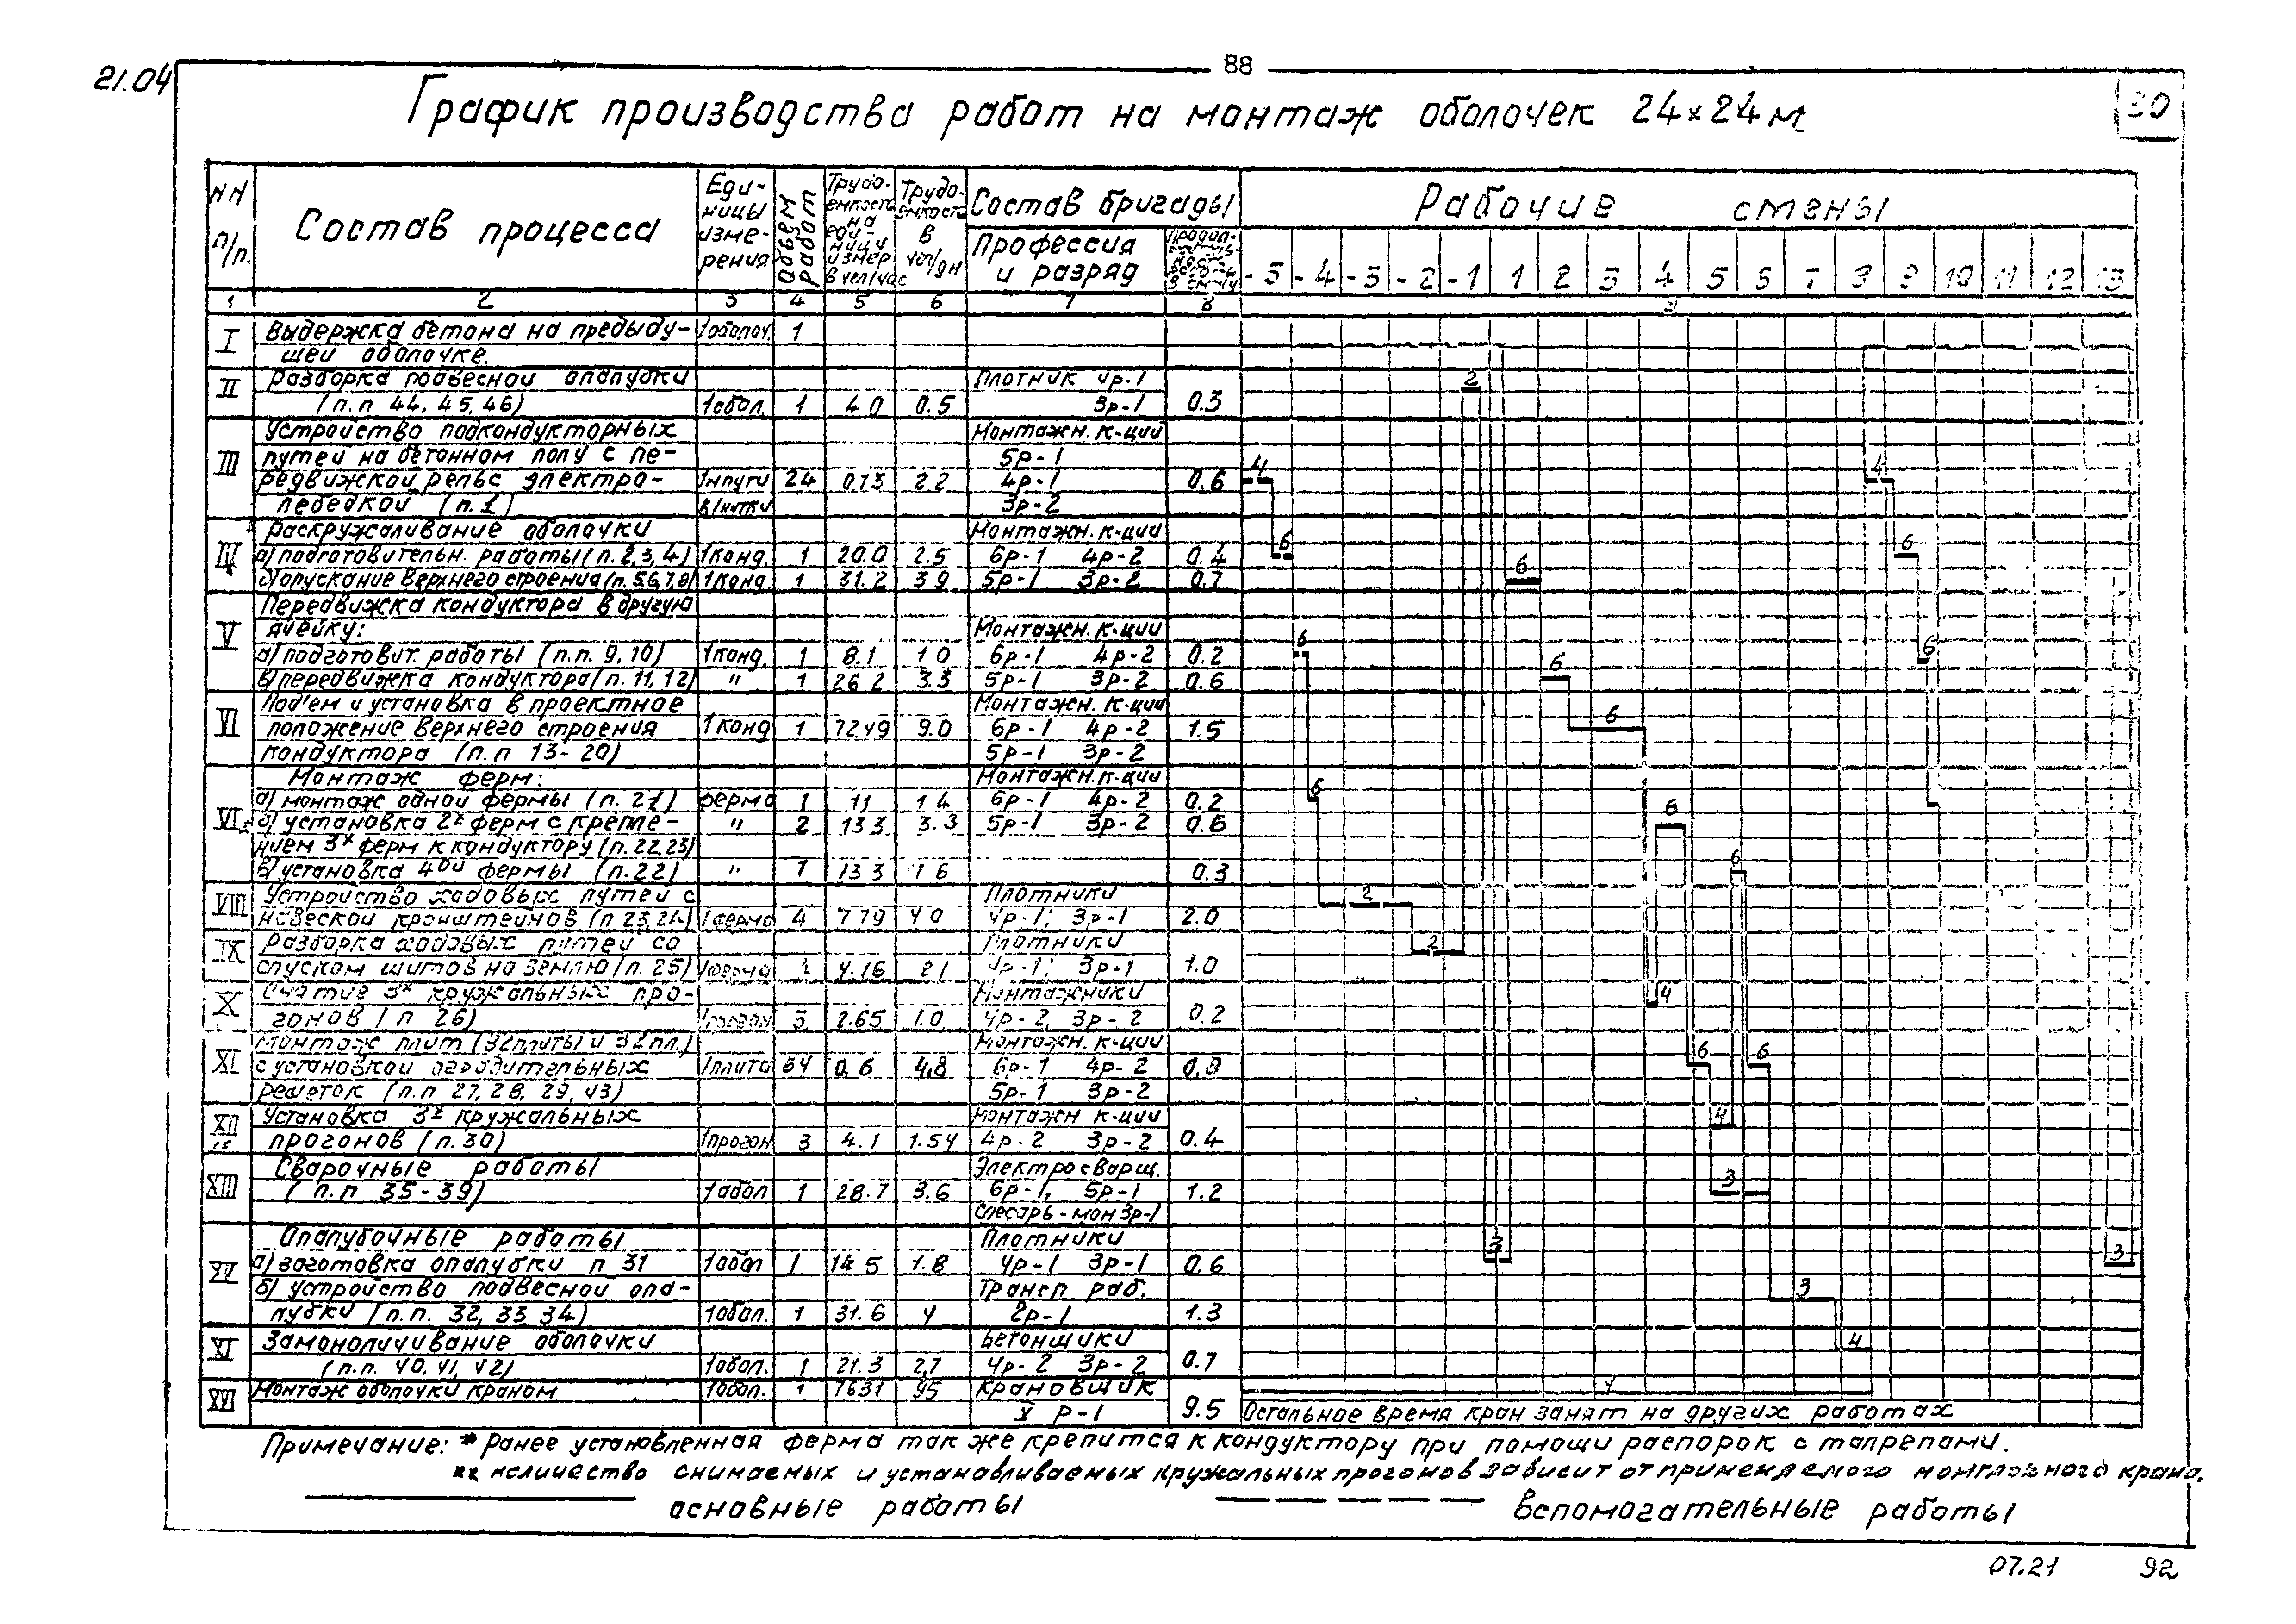 88
21.04
График производства работ на монтаж оболочек 24×24м
30
NN п/п.
Состав процесса
Единицы измерения
Объем работ
Трудоемкость на единицу измер. в чел/час
Трудоемкость в чел/дн
Состав бригады
Профессия и разряд
Рабочие смены
-5 -4 -3 -2 -1 1 2 3 4 5 6 7 8 9 10 11 12 13
1 2 3 4 5 6 7 8 9
I Выдержка бетона на предыду- 1оболоч. 1
щей оболочке.
II Разборка подвесной опалубки Плотник 4р-1 2
(п.п 44, 45, 46) 1обол. 1 4.0 0.5 3р-1 0.3
Устройство подкондукторных Монтажн. к-ций
путей на бетонном полу с пе- 5р-1
III редвижкой рельс электро- 1мпути 24 0.73 2.2 4р-1 0.6 4 4
лебедкой (п.1) в/нитки 3р-2
Раскружаливание оболочки Монтажн. к-ций
IV а) подготовительн. работы (п.2,3,4) 1конд. 1 20.0 2.5 6р-1 4р-2 0.4 6 6
б) опускание верхнего строения (п. 5,6,7,8) 1конд. 1 31.2 3.9 5р-1 3р-2 0.7 6
Передвижка кондуктора в другую
V ячейку: Монтажн. к-ций
а) подготовит. работы (п.п. 9, 10) 1конд. 1 8.1 1.0 6р-1 4р-2 0.2 6 6
в) передвижка кондуктора (п. 11, 12) " 1 26.2 3.3 5р-1 3р-2 0.6 6
Под'ем и установка в проектное Монтажн. к-ций
VI положение верхнего строения 1конд 1 72.49 9.0 6р-1 4р-2 1.5 6
кондуктора (п.п 13-20) 5р-1 3р-2
Монтаж ферм: Монтажн. к-ций
а) монтаж одной фермы (п. 21) ферма 1 11 1.4 6р-1 4р-2 0.2 6
б) установка 2х ферм с крепле- " 2 13.3 3.3 5р-1 3р-2 0.6 6
нием 3х ферм к кондуктору (п. 22, 23)
б) установка 4ой фермы (п. 22) " 1 13.3 1.6 0.3 6
Устройство ходовых путей с Плотники
VIII навеской кронштейнов (п 23, 24) 1ферма 4 7.79 4.0 4р-1; 3р-1 2.0 2
IX Разборка ходовых путей со Плотники
спуском щитов на землю (п. 25) 1ферма 4.16 2.1 4р-1; 3р-1 1.0 2
X Снятие 3х кружальных про- Монтажники
гонов (п 26) 1прогон 3 2.65 1.0 4р-2, 3р-2 0.2 4
Монтаж плит (32плиты и 32пл.) Монтажн. к-ций
XI с установкой оградительных 1плита 64 0.6 4.8 6р-1 4р-2 0.8 6 6
решеток (п.п 27, 28, 29, 43) 5р-1 3р-2
XII Установка 3х кружальных Монтажн к-ций
прогонов (п. 30) 1прогон 3 4.1 1.54 4р-2 3р-2 0.4 4
Сварочные работы Электросварщ.
XIII (п.п 35-39) 1обол 1 28.7 3.6 6р-1, 5р-1 1.2 3
слесарь-мон 3р-1
Опалубочные работы Плотники
XV а) заготовка опалубки п 31 1обол 1 14.5 1.8 4р-1 3р-1 0.6 3 3
б) устройство подвесной опа- Трансп раб.
лубки (п.п. 32, 33, 34) 1обол. 1 31.6 4 2р-1 1.3 3
XI Замоноличивание оболочки Бетонщики
(п.п. 40, 41, 42) 1обол. 1 21.3 2,7 4р-2 3р-2 0.7 4
XVI Монтаж оболочки краном 1обол. 1 7631 95 Крановщик
V р-1 9.5 Остальное время кран занят на других работах
Примечание: * Ранее установленная ферма так же крепится к кондуктору при помощи распорок с талрепами.
** количество снимаемых и устанавливаемых кружальных прогонов зависит от применяемого монтажного крана.
основные работы вспомогательные работы
07.21 92